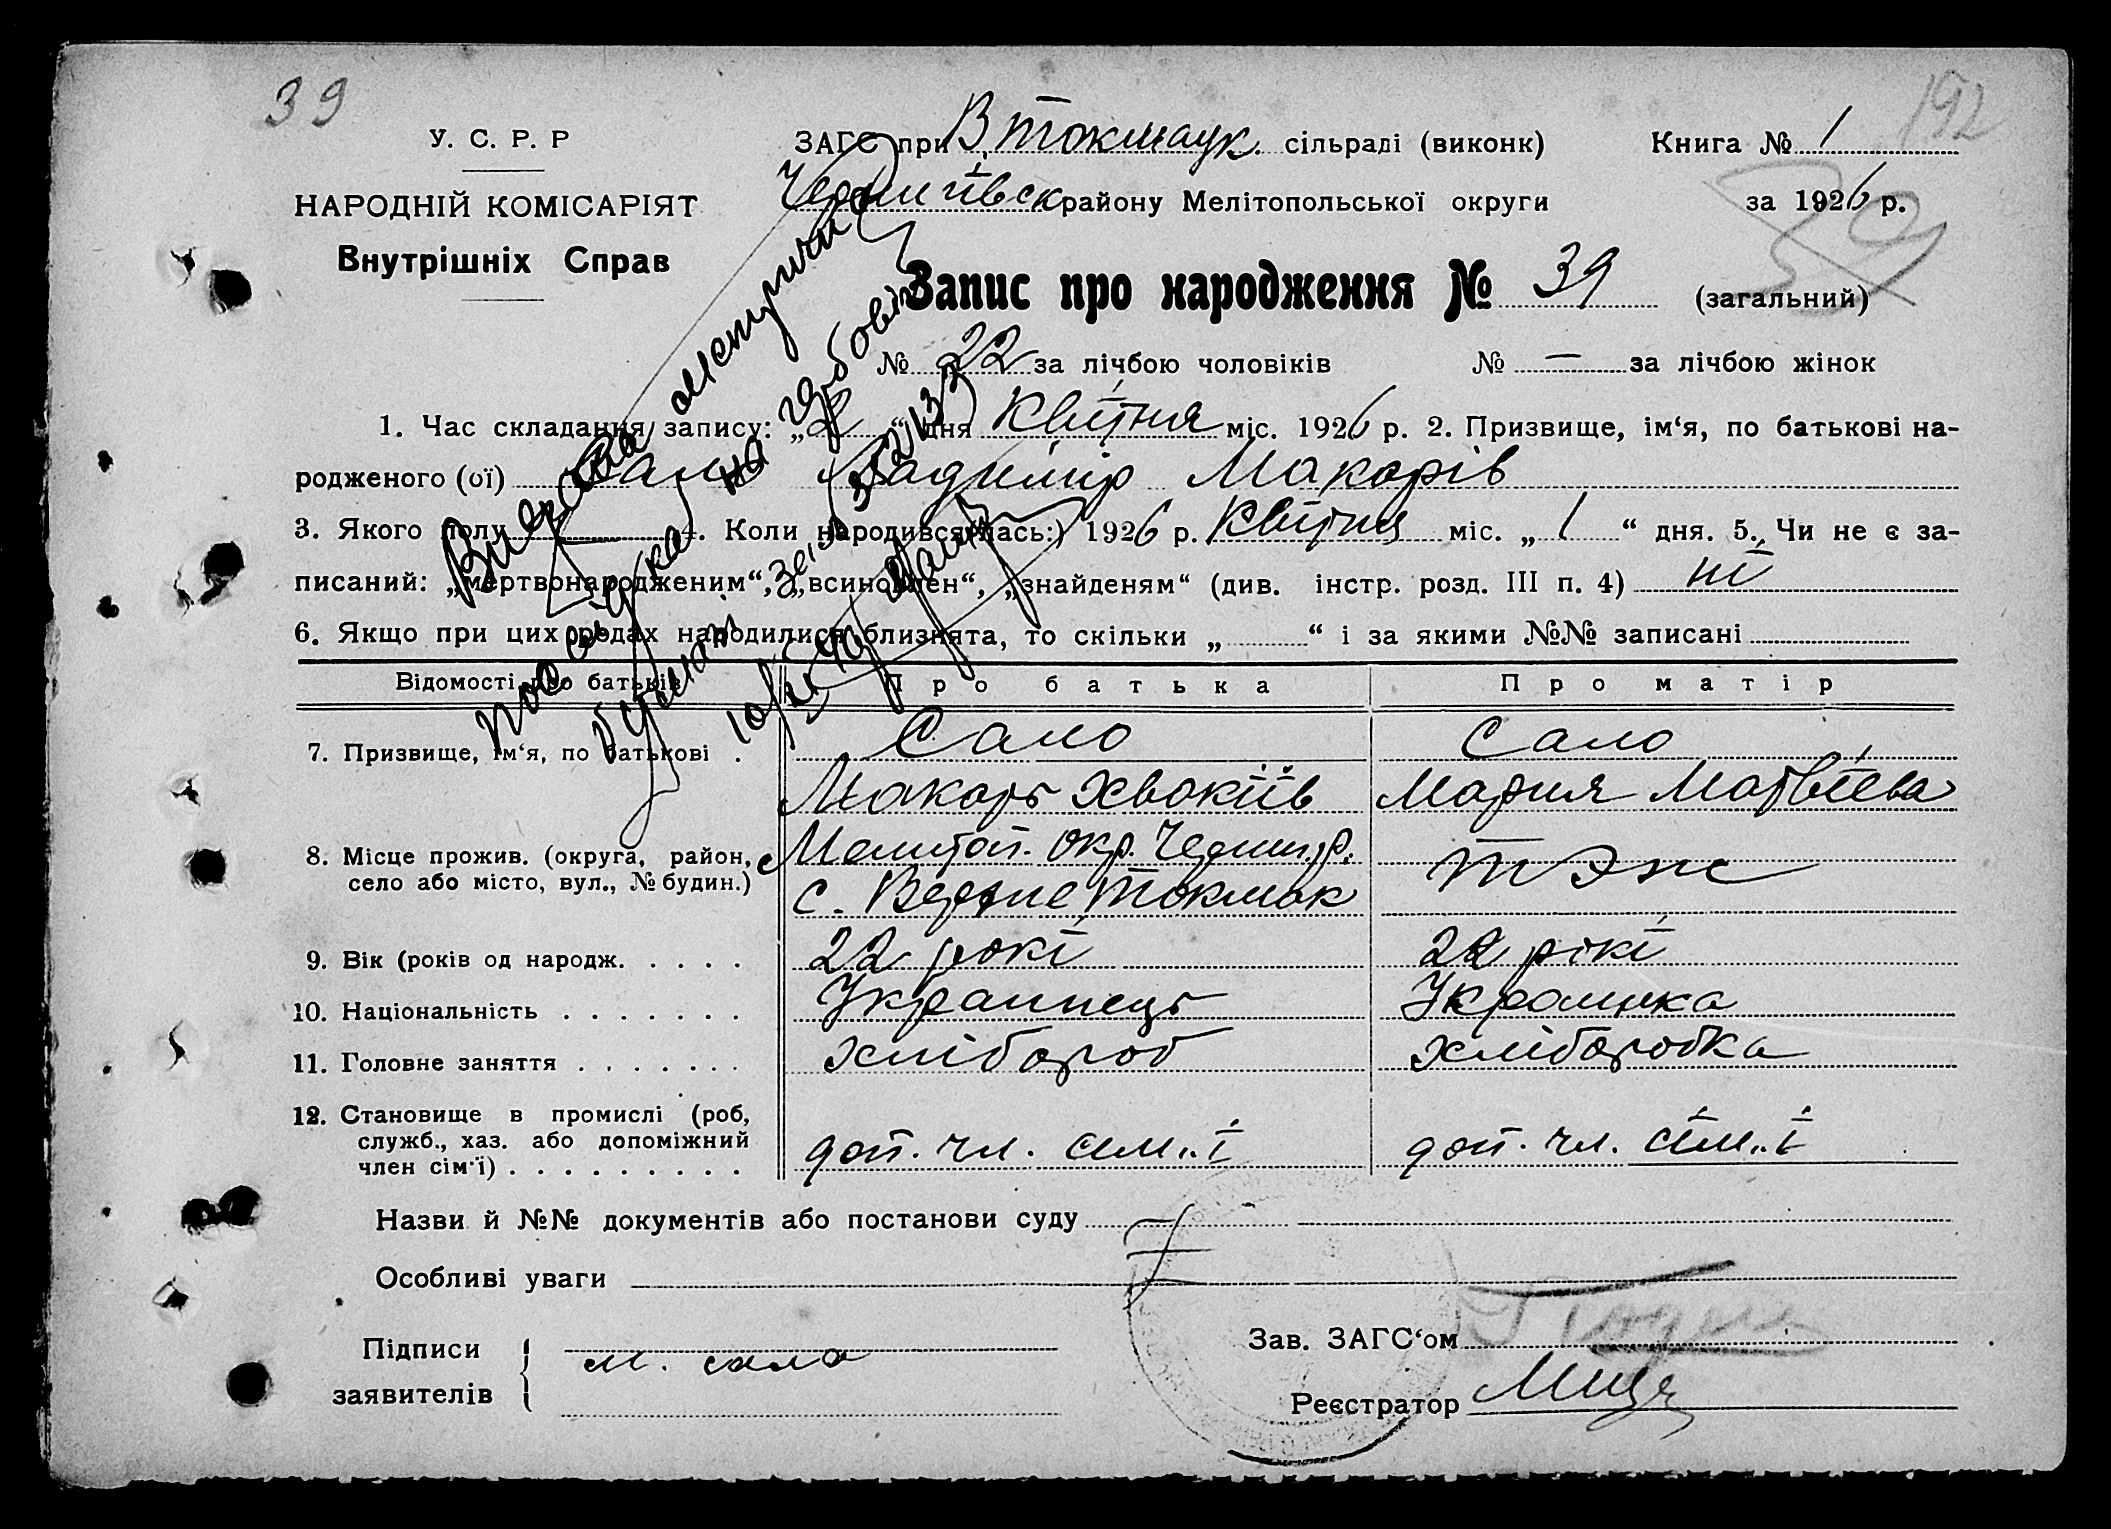 39
192
У. С. Р. Р
НАРОДНІЙ КОМІСАРІЯТ
Внутрішніх Справ
ЗАГС при В Токмаук. сільраді (виконк)
Книга № 1
Чернигівск району Мелітопольської округи
за 1926 р.
39
Запис про народження № 39 (загальний)
№ 22 за лічбою чоловіків № — за лічбою жінок
1. Час складання запису: „2“ дня Квітня міс. 1926 р. 2. Призвище, ім‘я, по батькові на-
родженого (ої) Сало Владимір Макарів
3. Якого полу 4. Коли народився(лась:) 1926 р. Квітня міс. „1“ дня. 5. Чи не є за-
писаний: „мертвонародженим“, „всиновлен“, „знайденям“ (див. інстр. розд. III п. 4) ні
6. Якщо при цих родах народилися близнята, то скільки „ “ і за якими №№ записані
Відомості про батьків
Про батька
Про матір
7. Призвище, ім‘я, по батькові .
Сало
Макарь Хвокіїв
Сало
Мария Матвіева
8. Місце прожив. (округа, район,
село або місто, вул., № будин.)
Мелитоп. окр. Черниг. р.
с. Верхне Токмак
тэж
9. Вік (років од народж. . . . .
22 рокі
22 рокі
10. Національність . . . . . . .
Украинець
Украинка
11. Головне заняття . . . . . . .
хлібороб
хліборобка
12. Становище в промислі (роб,
служб., хаз. або допоміжний
член сім‘ї) . . . . . . . . .
доп. чл. сім"ї
доп. чл. сім"ї
Назви й №№ документів або постанови суду
Особливі уваги
Підписи
заявителів
м. сало
Зав. ЗАГС‘ом
Реєстратор